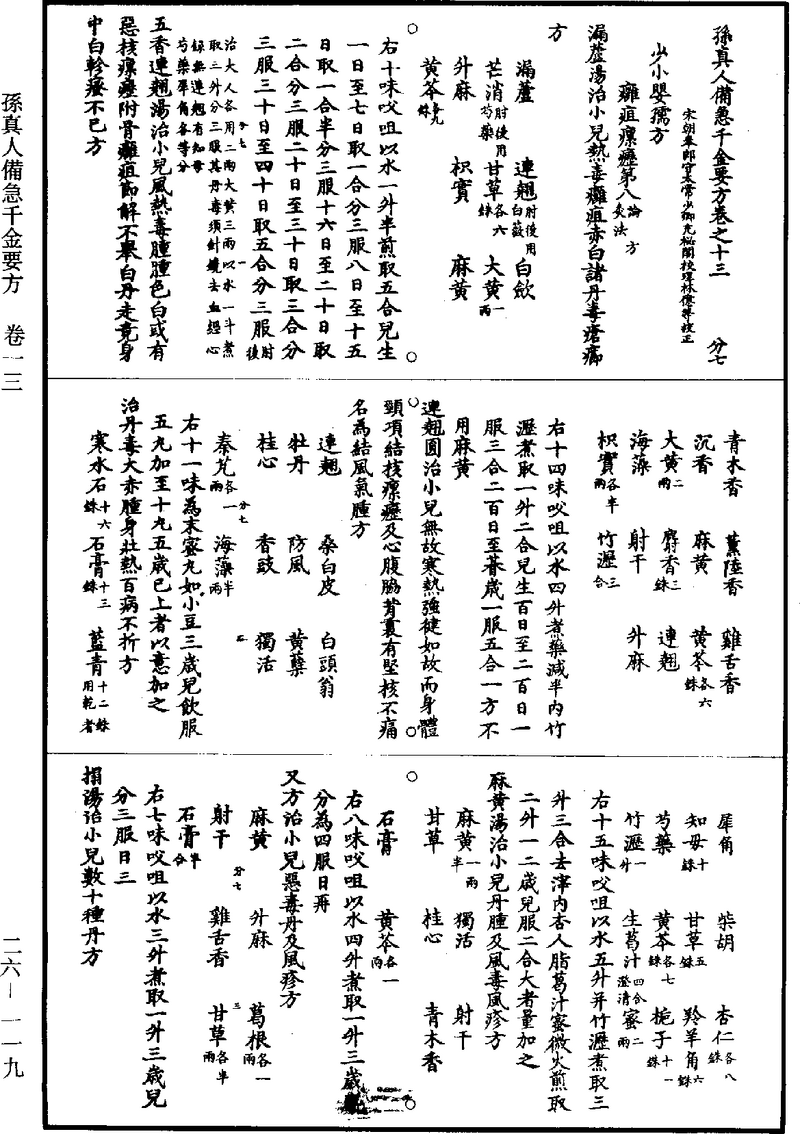 孫真人備急千金要方卷之十三 分七
宋朝奉郎守太常少卿充秘閣校理林億等校正
少小嬰孺方
癰疽瘰癧第八 論 方 灸法
漏蘆湯治小兒熱毒癰疽赤白諸丹毒瘡癤
方
漏蘆 連翹肘後用白薇 白斂
芒消肘後用芍藥 甘草各六銖 大黃一兩
升麻 枳實 麻黃
黃芩各九銖
右十味㕮咀以水一升半煎取五合兒生
一日至七日取一合分三服八日至十五
日取一合半分三服十六日至二十日取
二合分三服二十日至三十日取三合分
三服三十日至四十日取五合分三服肘後
治大人各用二兩大黃三兩以水一斗煮
取三升分三服其丹毒須針鑱去血經心
錄無連翹有知母
芍藥犀角各等分
五香連翹湯治小兒風熱毒腫腫色白或有
惡核瘰癧附骨癰疽節解不舉白丹走竟身
中白軫瘙不已方
青木香 薰陸香 雞舌香
沉香 麻黃 黃芩各六銖
大黃二兩 麝香三銖 連翹
海藻 射干 升麻
枳實各半兩 竹瀝三合
右十四味㕮咀以水四升煮藥減半內竹
瀝煮取一升二合兒生百日至二百日一
服三合二百日至朞歲一服五合一方不
用麻黃
連翹圓治小兒無故寒熱強健如故而身體
頸項結核瘰癧及心腹脇背裏有堅核不痛
名為結風氣腫方
連翹 桑白皮 白頭翁
牡丹 防風 黃蘗
桂心 香豉 獨活
秦艽各一兩 海藻半兩
右十一味為末蜜丸如小豆三歲兒飲服
五丸加至十丸五歲已上者以意加之
治丹毒大赤腫身壯熱百病不折方
寒水石十六銖 石膏十三銖 藍青十二銖用乾者
犀角 柴胡 杏仁各八銖
知母十銖 甘草五銖 羚羊角六銖
芍藥 黃芩各七銖 梔子十一銖
竹瀝一升 生葛汁四合澄清 蜜二兩
右十五味㕮咀以水五升并竹瀝煮取三
升三合去滓內杏人脂葛汁蜜微火煎取
二升一二歲兒服二合大者量加之
麻黃湯治小兒丹腫及風毒風疹方
麻黃一兩半 獨活 射干
甘草 桂心 青木香
石膏 黃芩各一兩
右八味㕮咀以水四升煮取一升三歲兒
分為四服日再
又方治小兒惡毒丹及風疹方
麻黃 升麻 葛根各一兩
射干 雞舌香 甘草各半兩
石膏半合
右七味㕮咀以水三升煮取一升三歲兒
分三服日三
搨湯治小兒數十種丹方
孫真人備急千金要方 卷一三
二六—一一九